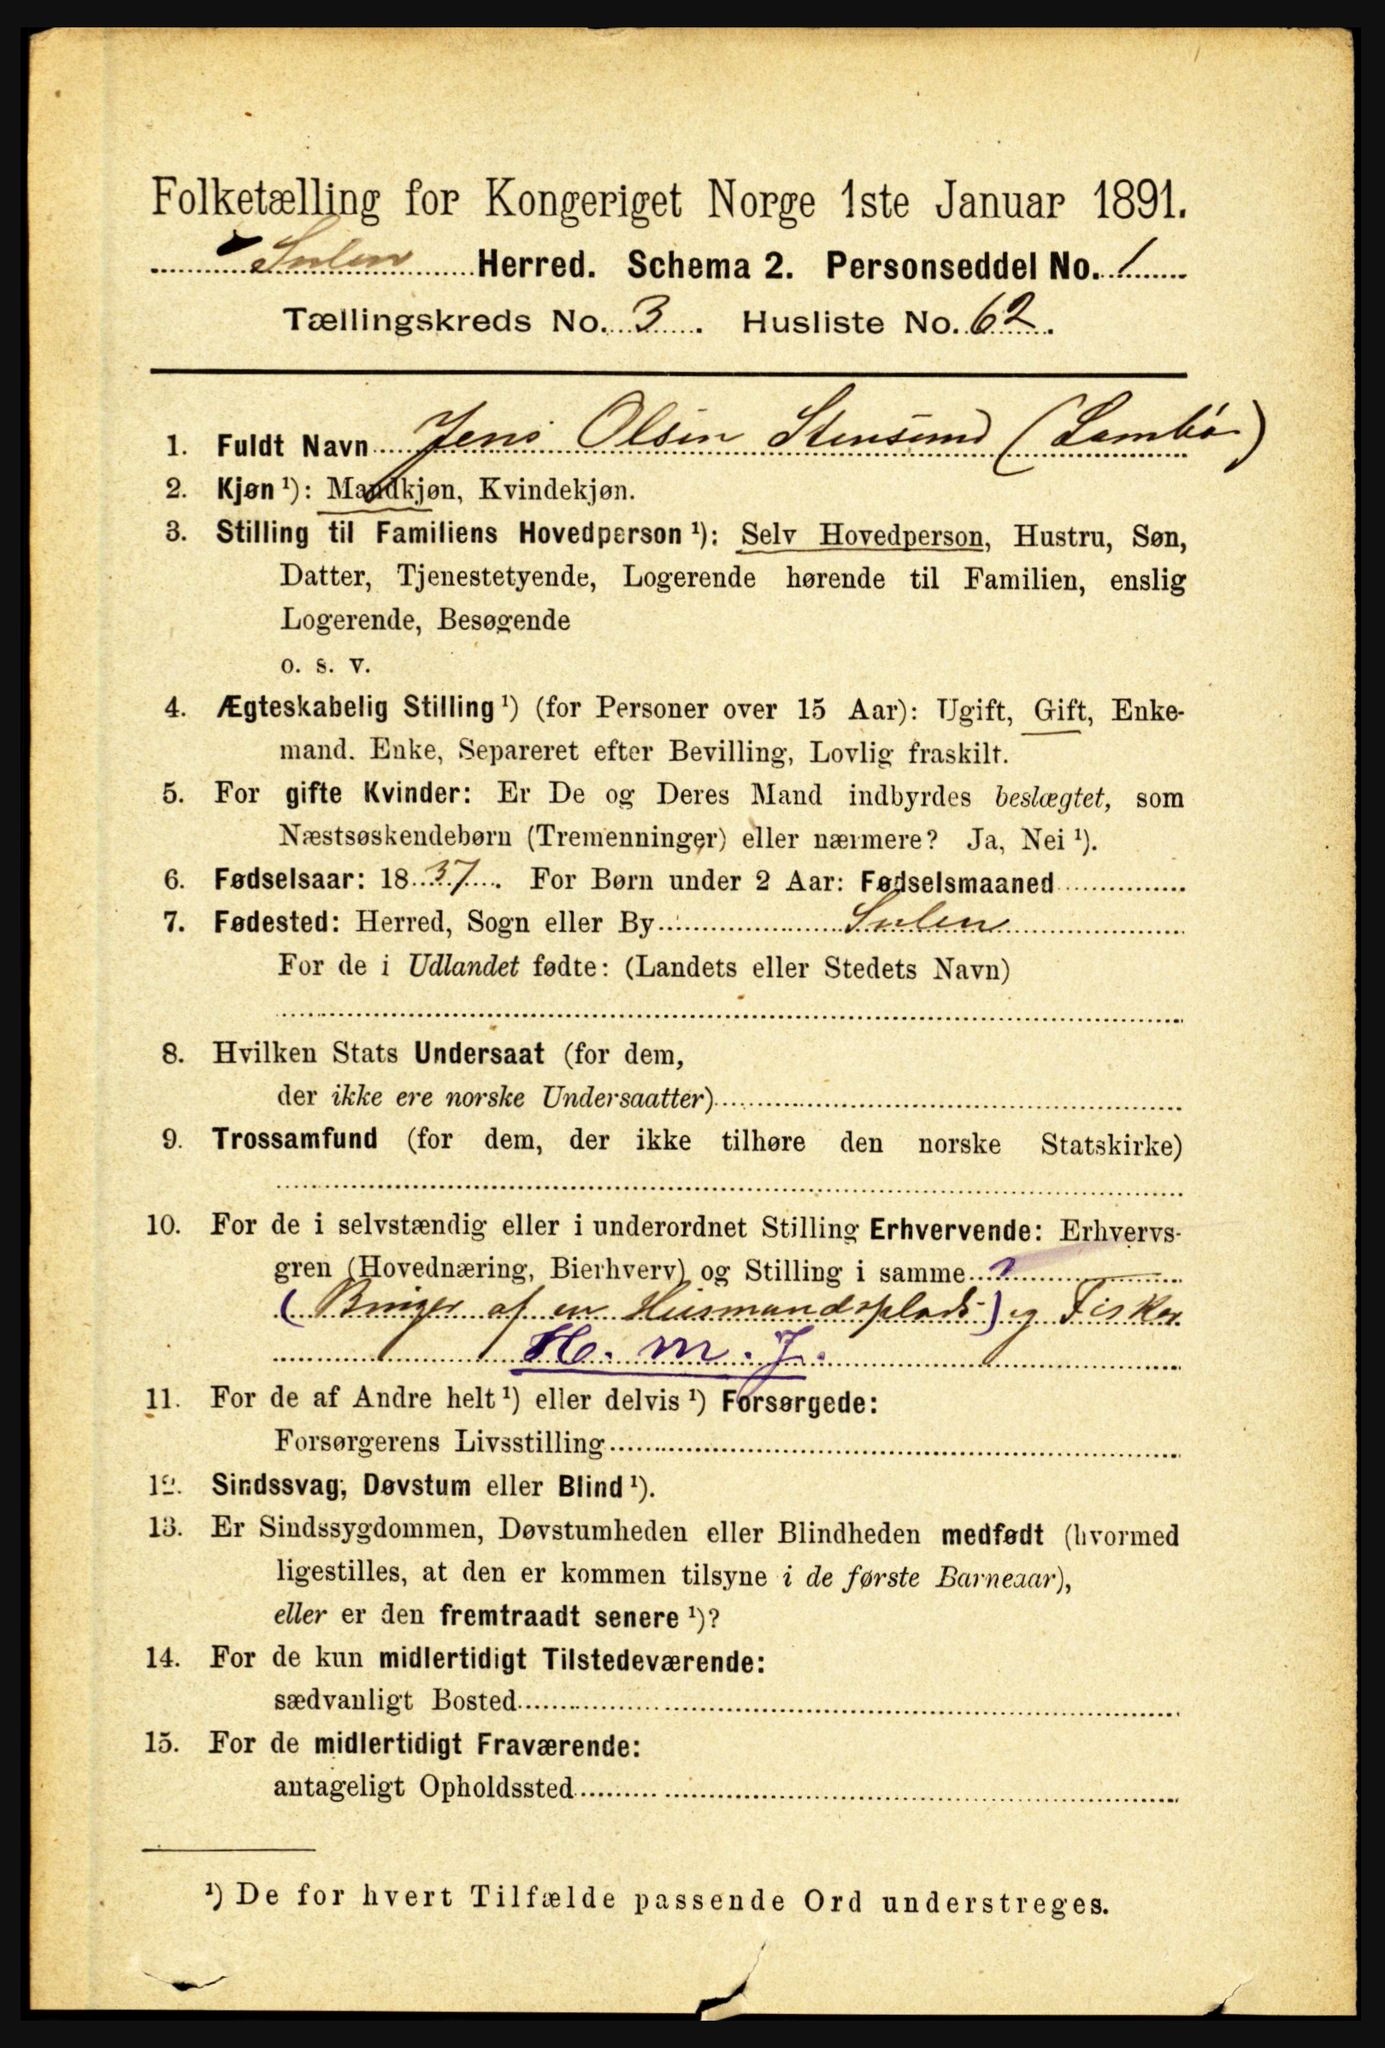 Folketælling for Kongeriget Norge 1ste Januar 1891.
Sulen Herred. Schema 2. Personseddel No. 1
Tællingskreds No. 3. Husliste No. 62.
1. Fuldt Navn Jens Olsen Stensund (Lambø)
2. Kjøn ¹): Mandkjøn, Kvindekjøn.
3. Stilling til Familiens Hovedperson ¹): Selv Hovedperson, Hustru, Søn,
Datter, Tjenestetyende, Logerende hørende til Familien, enslig
Logerende, Besøgende
o. s. v.
4. Ægteskabelig Stilling ¹) (for Personer over 15 Aar): Ugift, Gift, Enke-
mand. Enke, Separeret efter Bevilling, Lovlig fraskilt.
5. For gifte Kvinder: Er De og Deres Mand indbyrdes beslægtet, som
Næstsøskendebørn (Tremenninger) eller nærmere? Ja, Nei ¹).
6. Fødselsaar: 1837. For Børn under 2 Aar: Fødselsmaaned
7. Fødested: Herred, Sogn eller By Sulen
For de i Udlandet fødte: (Landets eller Stedets Navn)
8. Hvilken Stats Undersaat (for dem,
der ikke ere norske Undersaatter)
9. Trossamfund (for dem, der ikke tilhøre den norske Statskirke)
10. For de i selvstændig eller i underordnet Stilling Erhvervende: Erhvervs-
gren (Hovednæring, Bierhverv) og Stilling i samme
(Bruger af en Husmandsplads) og Fisker
H. m. J.
11. For de af Andre helt ¹) eller delvis ¹) Forsørgede:
Forsørgerens Livsstilling
12. Sindssvag, Døvstum eller Blind ¹).
13. Er Sindssygdommen, Døvstumheden eller Blindheden medfødt (hvormed
ligestilles, at den er kommen tilsyne i de første Barneaar),
eller er den fremtraadt senere ¹)?
14. For de kun midlertidigt Tilstedeværende:
sædvanligt Bosted
15. For de midlertidigt Fraværende:
antageligt Opholdssted
¹) De for hvert Tilfælde passende Ord understreges.